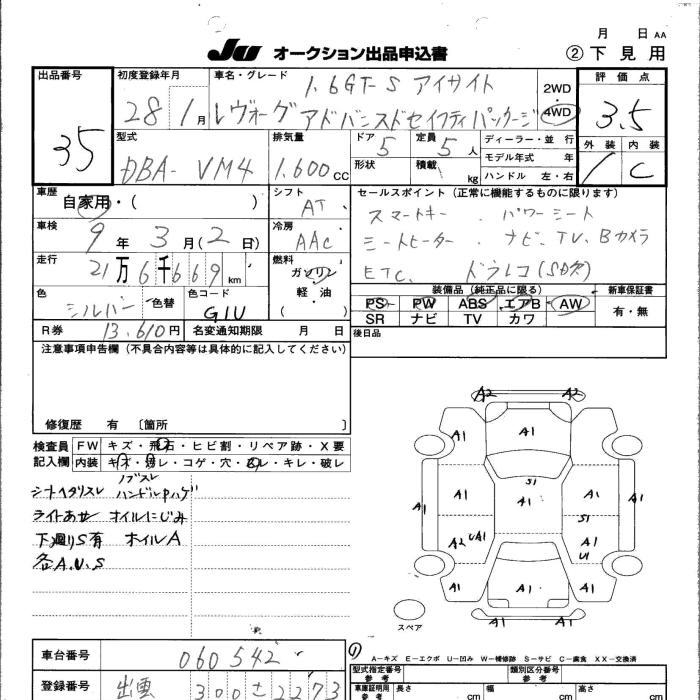 月 日 AA
JU オークション出品申込書 ②下見用
出品番号 35
初度登録年月 28 1月
車名・グレード 1.6GT-S アイサイト
レヴォーグ アドバンスドセイフティパッケージ
2WD
4WD
評価点 3.5
外装 内装 C
型式 DBA-VM4
排気量 1.600cc
ドア 5 定員 5人
形状 積載 kg
ディーラー・並行
モデル年式 年
ハンドル 左・右
車歴 自家用・( )
シフト AT
車検 9年3月(2日)
冷房 AAC
走行 21万6千669km
燃料 ガソリン 軽・油 ( )
色 シルバー 色替 色コード G1U
R券 13.610円 名変通知期限 月 日
セールスポイント(正常に機能するものに限ります)
スマートキー . パワーシート
シートヒーター . ナビ.TV.Bカメラ
ETC. ドラレコ(SD欠)
装備品(純正品に限る) 新車保証書
PS PW ABS エアB AW 有・無
SR ナビ TV カワ
後日品
注意事項申告欄(不具合内容等は具体的に記入してください)
修復歴 有 〔箇所 〕
検査員 FW キズ・飛石・ヒビ割・リペア跡・X要
記入欄 内装 キズ・汚レ・コゲ・穴・スレ・キレ・破レ
シートヘタリスレ ハンドルPハゲ
ライトあせ オイルにじみ
下廻りS有 オイルA
各A.U.S
A2 A2
A1 A1 A1
S1
A1 A1 A1 A1 A1
S1
A2 UA1 A1
U1
A1 A1 A1
A1
スペア
A-キズ E-エクボ U-凹み W-補修跡 S-サビ C-腐食 XX-交換済
車台番号 060542
登録番号 出雲 300 さ 2273
型式指定番号 参考 類別区分番号 参考
車庫証明用 参考 長さ cm 幅 cm 高さ cm